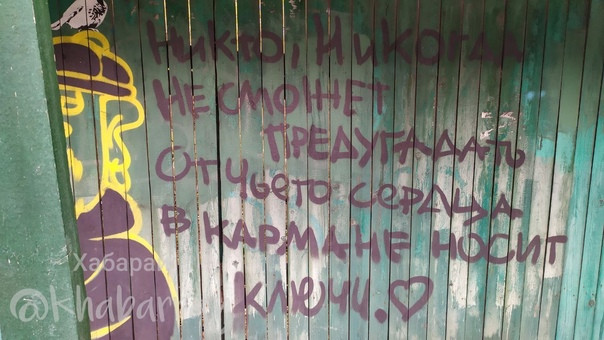 НИКТО, НИКОГДА
НЕ СМОЖЕТ
ПРЕДУГАДАТЬ
ОТ ЧЬЕГО СЕРДЦА
В КАРМАНЕ НОСИТ
КЛЮЧИ.